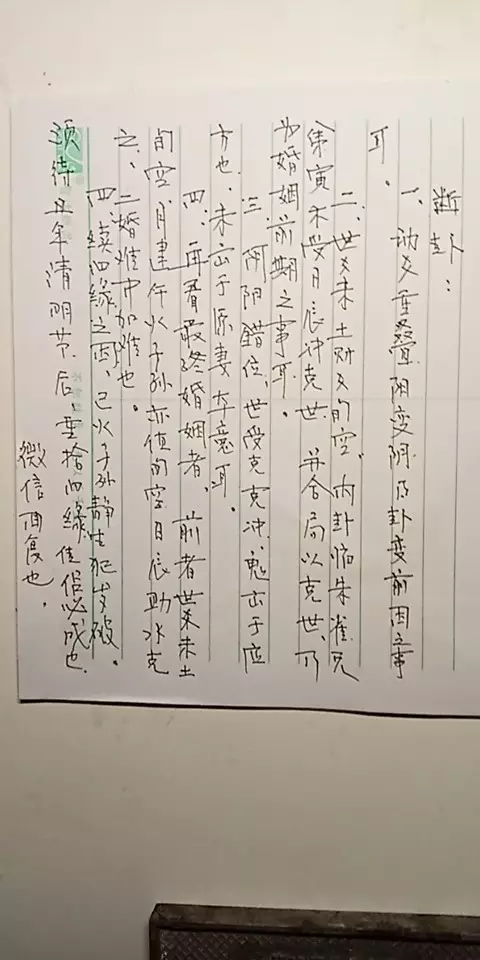 断卦：
一、动爻重叠阴变阴乃卦变前因之事
耳。
二、世爻未土财爻旬空、内卦临朱雀兄
弟寅木受月辰冲克世、并合局以克世、乃
为婚姻前期之事耳。
三、阴阳错位、世受克克冲、鬼出于应
方也、未出于原妻本意耳。
四、再看最终婚姻者、前者世爻未土
旬空、月建午火子孙亦值旬空日辰助水克
之、二婚难中加难也。
四、续四缘之西、己火子孙静生犯岁破。
须待丑年清明节后、重拾四缘、佳侣必成也、
微信回复也。